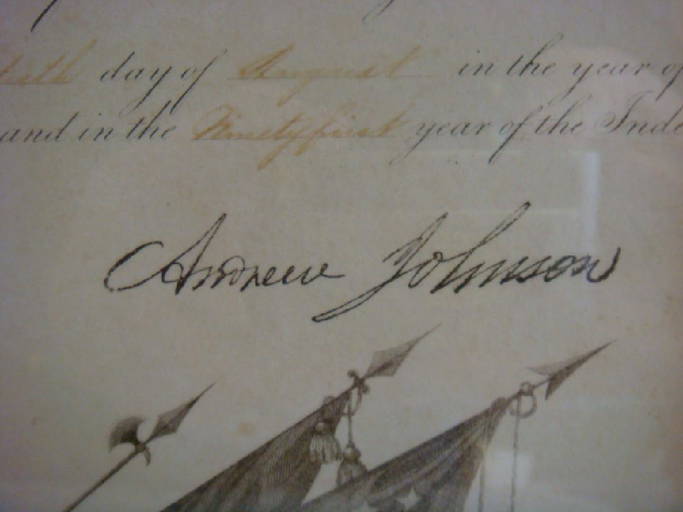 day of August in the year of
and in the Ninetyfirst year of the Inde
Andrew Johnson